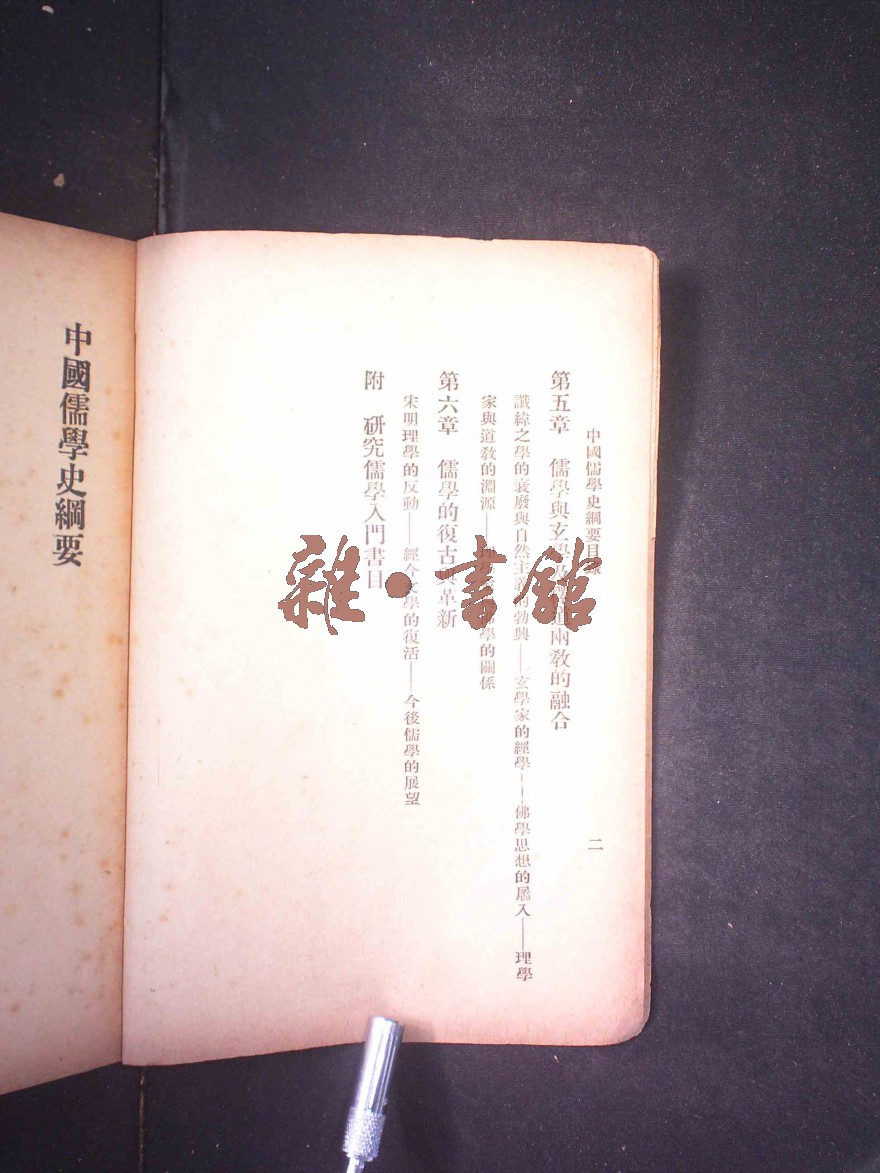 中國儒學史綱要目
二
第五章　儒學與玄學 兩教的融合
讖緯之學的衰廢與自然主 勃興——玄學家的經學——佛學思想的羼入——理學
家與道教的淵源—— 學的關係
第六章　儒學的復古 革新
宋明理學的反動——經今文學的復活——今後儒學的展望
附　研究儒學入門書目
中國儒學史綱要
雜·書館